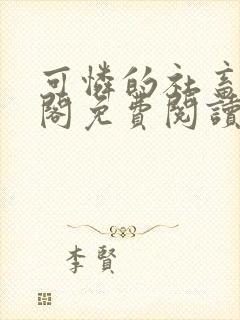 可憐的社畜
閣免費閱讀
李賢